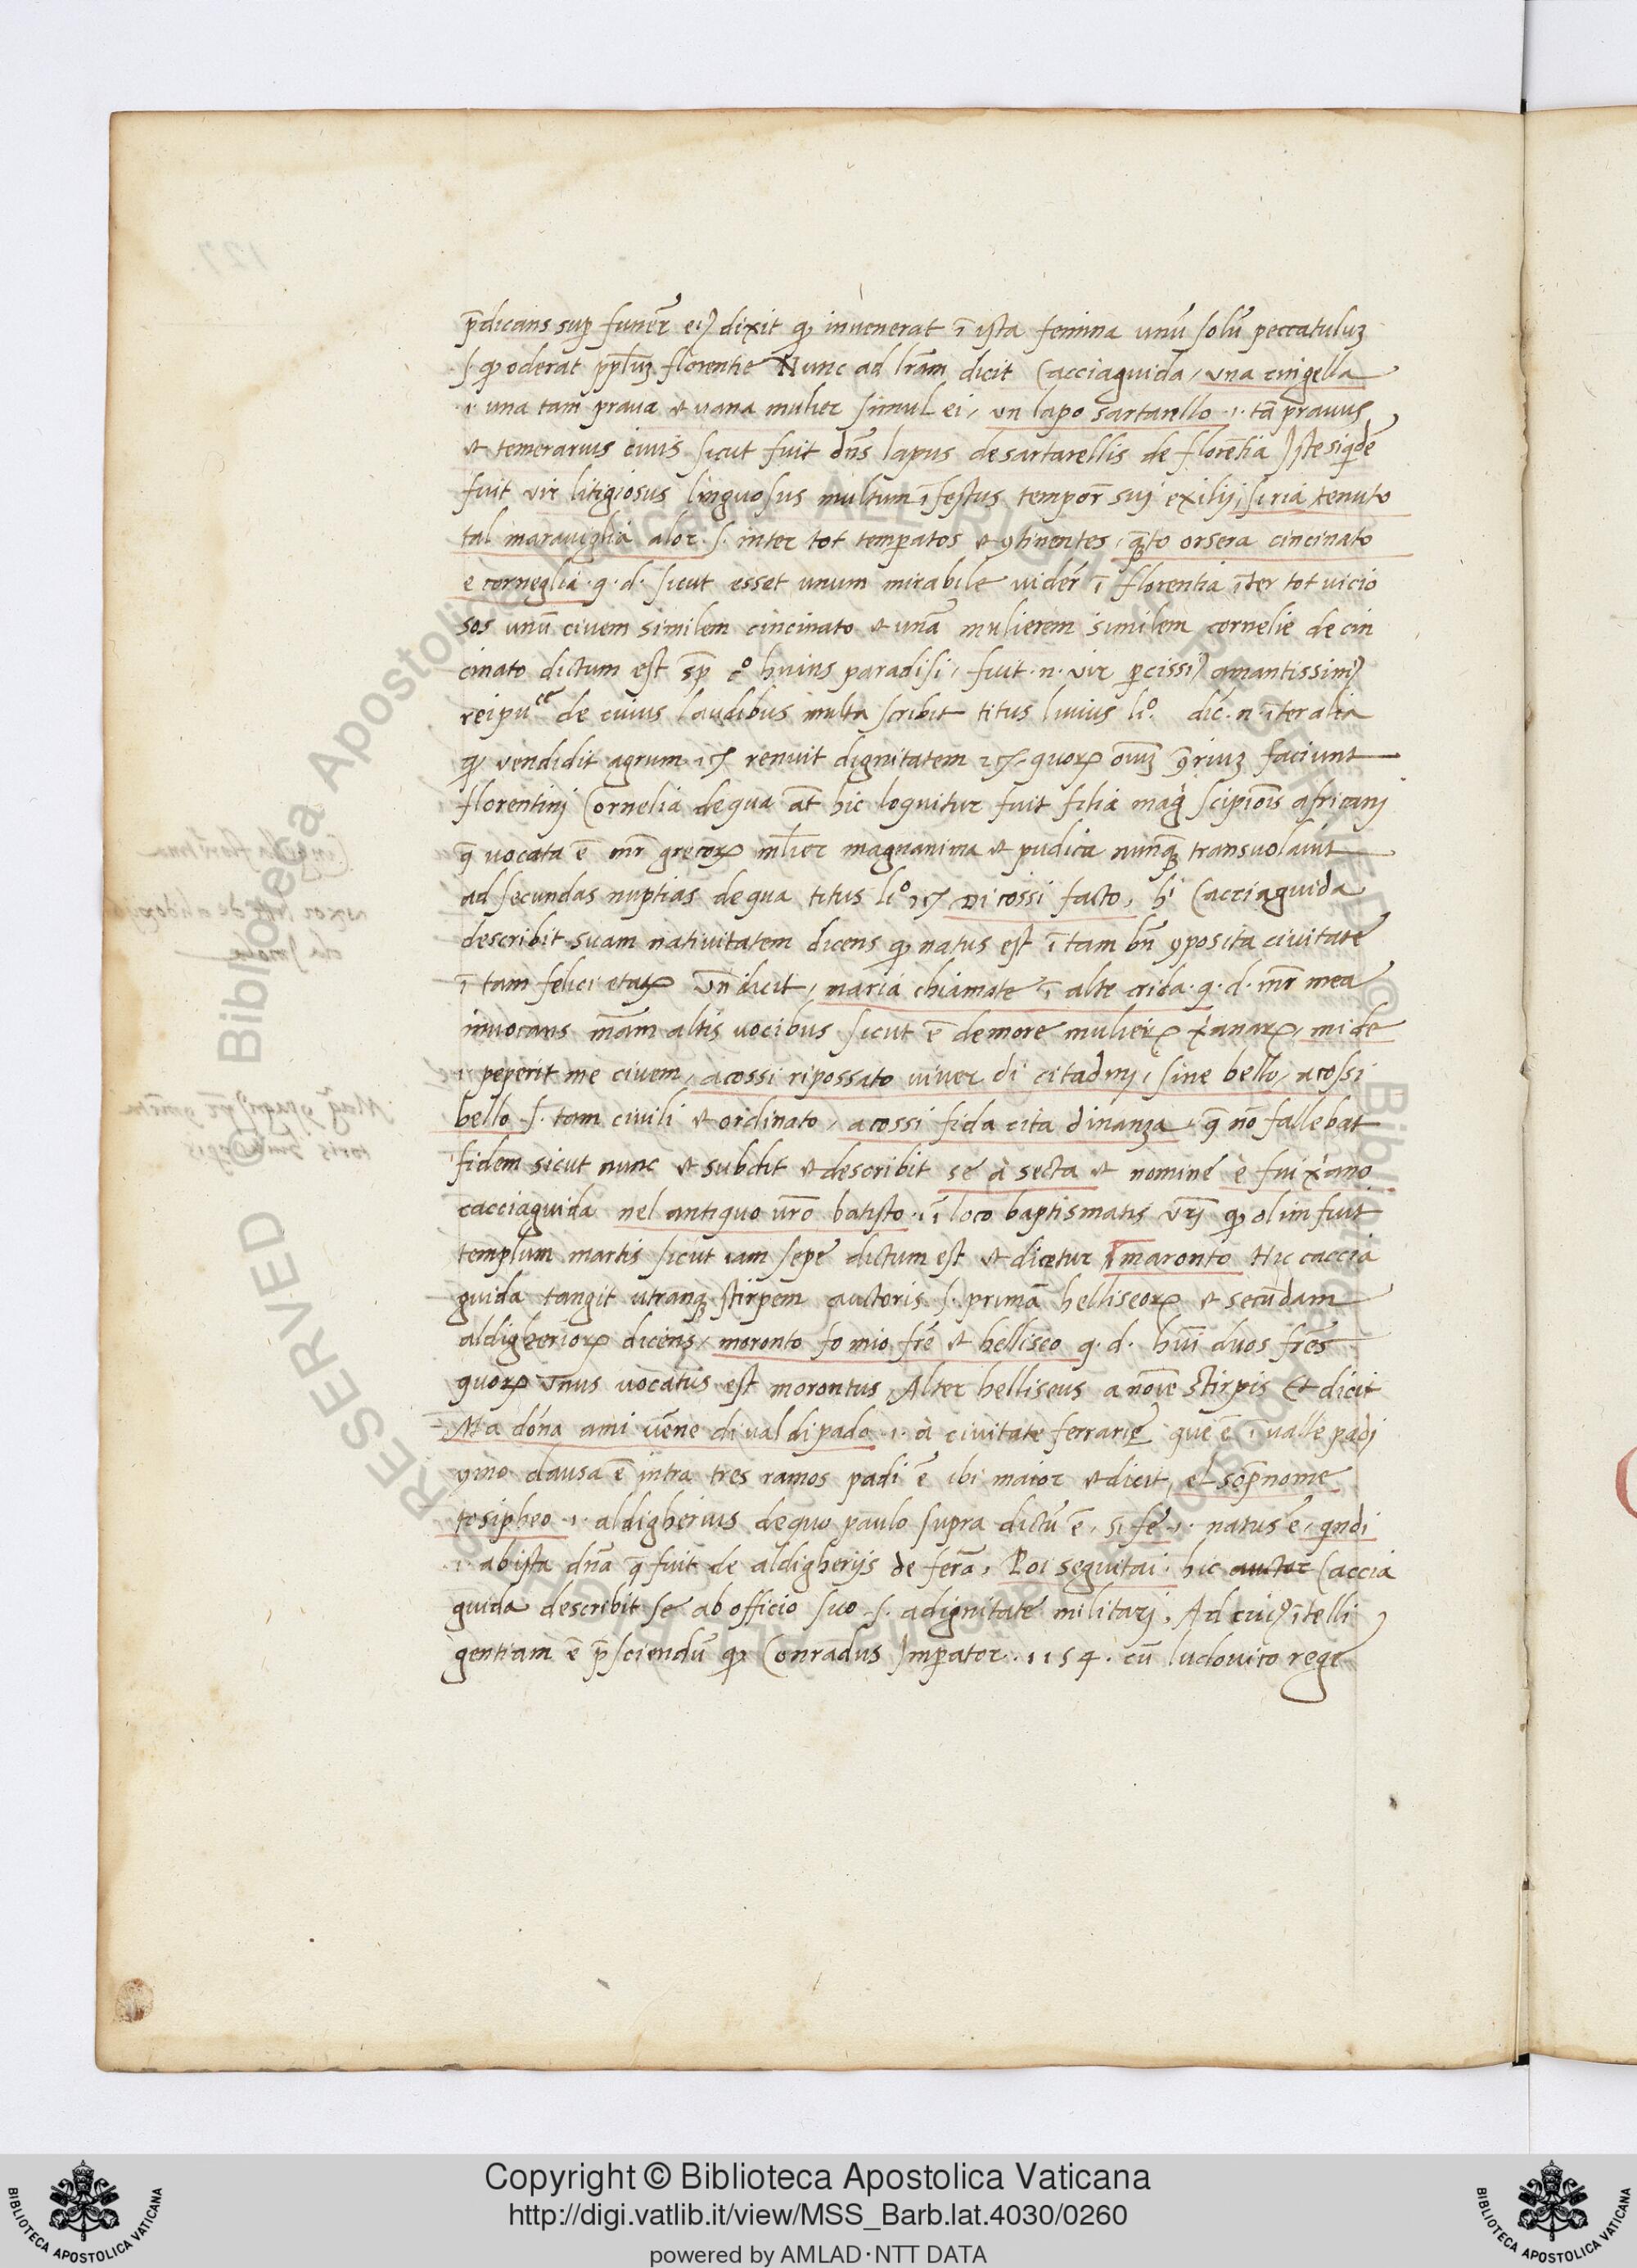 p̄dicans sup̱ funer̄ eiꝰ dixit ꝙ invenerat ī ista femina unū solū peccatuluꝫ
.s. ꝙ oderat pp̄luꝫ florentie Nunc ad lr̄am dicit Cacciaguida, una cingella
.i. una tam prava et vana mulier simul ei, un lapo sartarello .i. tā pravus
et temerarius civis sicut fuit dn̄s lapus de sartarellis de florētia Iste siqͥdē
fuit vir litigiosus linguosus multum īfestus tempor̄ suj exilij, siria tenuto
tal maraviglia alor .s. inter tot temp̱atos et ꝯtinentes, qͣto or seria cincinato
e corneglia .q.d. sicut esset unum mirabile vider̄ ī florentia īter tot vicio
sos unū civem similem cincinato et unā mulierem similem cornelie de cin
cinato dictum est sup̄ cͦ huius paradisi, fuit .n. vir p̱cissiꝰ amantissimꝰ
reipuce de cuius laudibus multa scribit titus livius liͦ. dic .n. īter alia
ꝙ vendidit agrum ⁊c̃ renuit dignitatem ⁊c̃ quoꝝ om̄ꝫ ꝯ̄riuꝫ faciunt
florentinj Cornelia de qua āt hic loquitur fuit filia mag̍ scipiōis africanj
q̄ vocata ē mr̄ grecoꝝ ml̄ier magnanima et pudica nunqͣꝫ transvolavit
ad secundas nuptias de qua titus liͦ ⁊c̃ Di cossi facto, hͥ Cacciaguida
describit suam nativitatem dicens ꝙ natus est ī tam bn̄ ꝯposita civitate
ī tam felici etate Un̄ dicit, maria chiamate ī alte crida .q.d. mr̄ mea
invocans mām altis vocibus sicut ē de more mulieꝝ xͥanaꝝ, mi de
.i. peperit me civem, acossi ripossato viver di citadinj, sine bello, acossi
bello .s. tam civili et ordinato, acossi fida cita dinanza, q̄ nō fallebat
fidem sicut nunc et subdit et describit se à secta et nomine è fui xͥano
cacciaguida nel antiquo vr̄o batisto .i. ī loco baptismatis vr̄j ꝙ olim fuit
templum martis sicut iam sepe dictum est et dicetur maronto Hic caccia
guida tangit utranqꝫ stirpem auctoris .s. primā helliseoꝝ et secūdam
aldigherioꝝ dicens, moronto fo mio fr̄e et helliseo q.d. hui duos fr̄es
quoꝝ unus vocatus est morontus, Alter helliseus a noīe stirpis Et dicit
Ma dōna ami vēne di val di pado .i. à civitate ferrarie que ē ī valle padj
ymo clausa ē intra tres ramos padi ē ibi maior et dicit, el sop̄nome
to sipheo .i. aldigherius de quo paulo supra dictū ē, si fe .i. natus ē, qͥndi
.i. ab ista dn̄a q̄ fuit de aldigherijs de ferā, Poi seguitai, hic auctor Caccia
guida describit se ab officio suo .s. a dignitate militarj, Ad cuiꝰ ītelli
gentiam ē p̄sciendū ꝙ Conradus Imp̱ator .1154. cū ludovico rege
Copyright © Biblioteca Apostolica Vaticana
http://digi.vatlib.it/view/MSS_Barb.lat.4030/0260
powered by AMLAD·NTT DATA
BIBLIOTECA APOSTOLICA VATICANA
BIBLIOTECA APOSTOLICA VATICANA